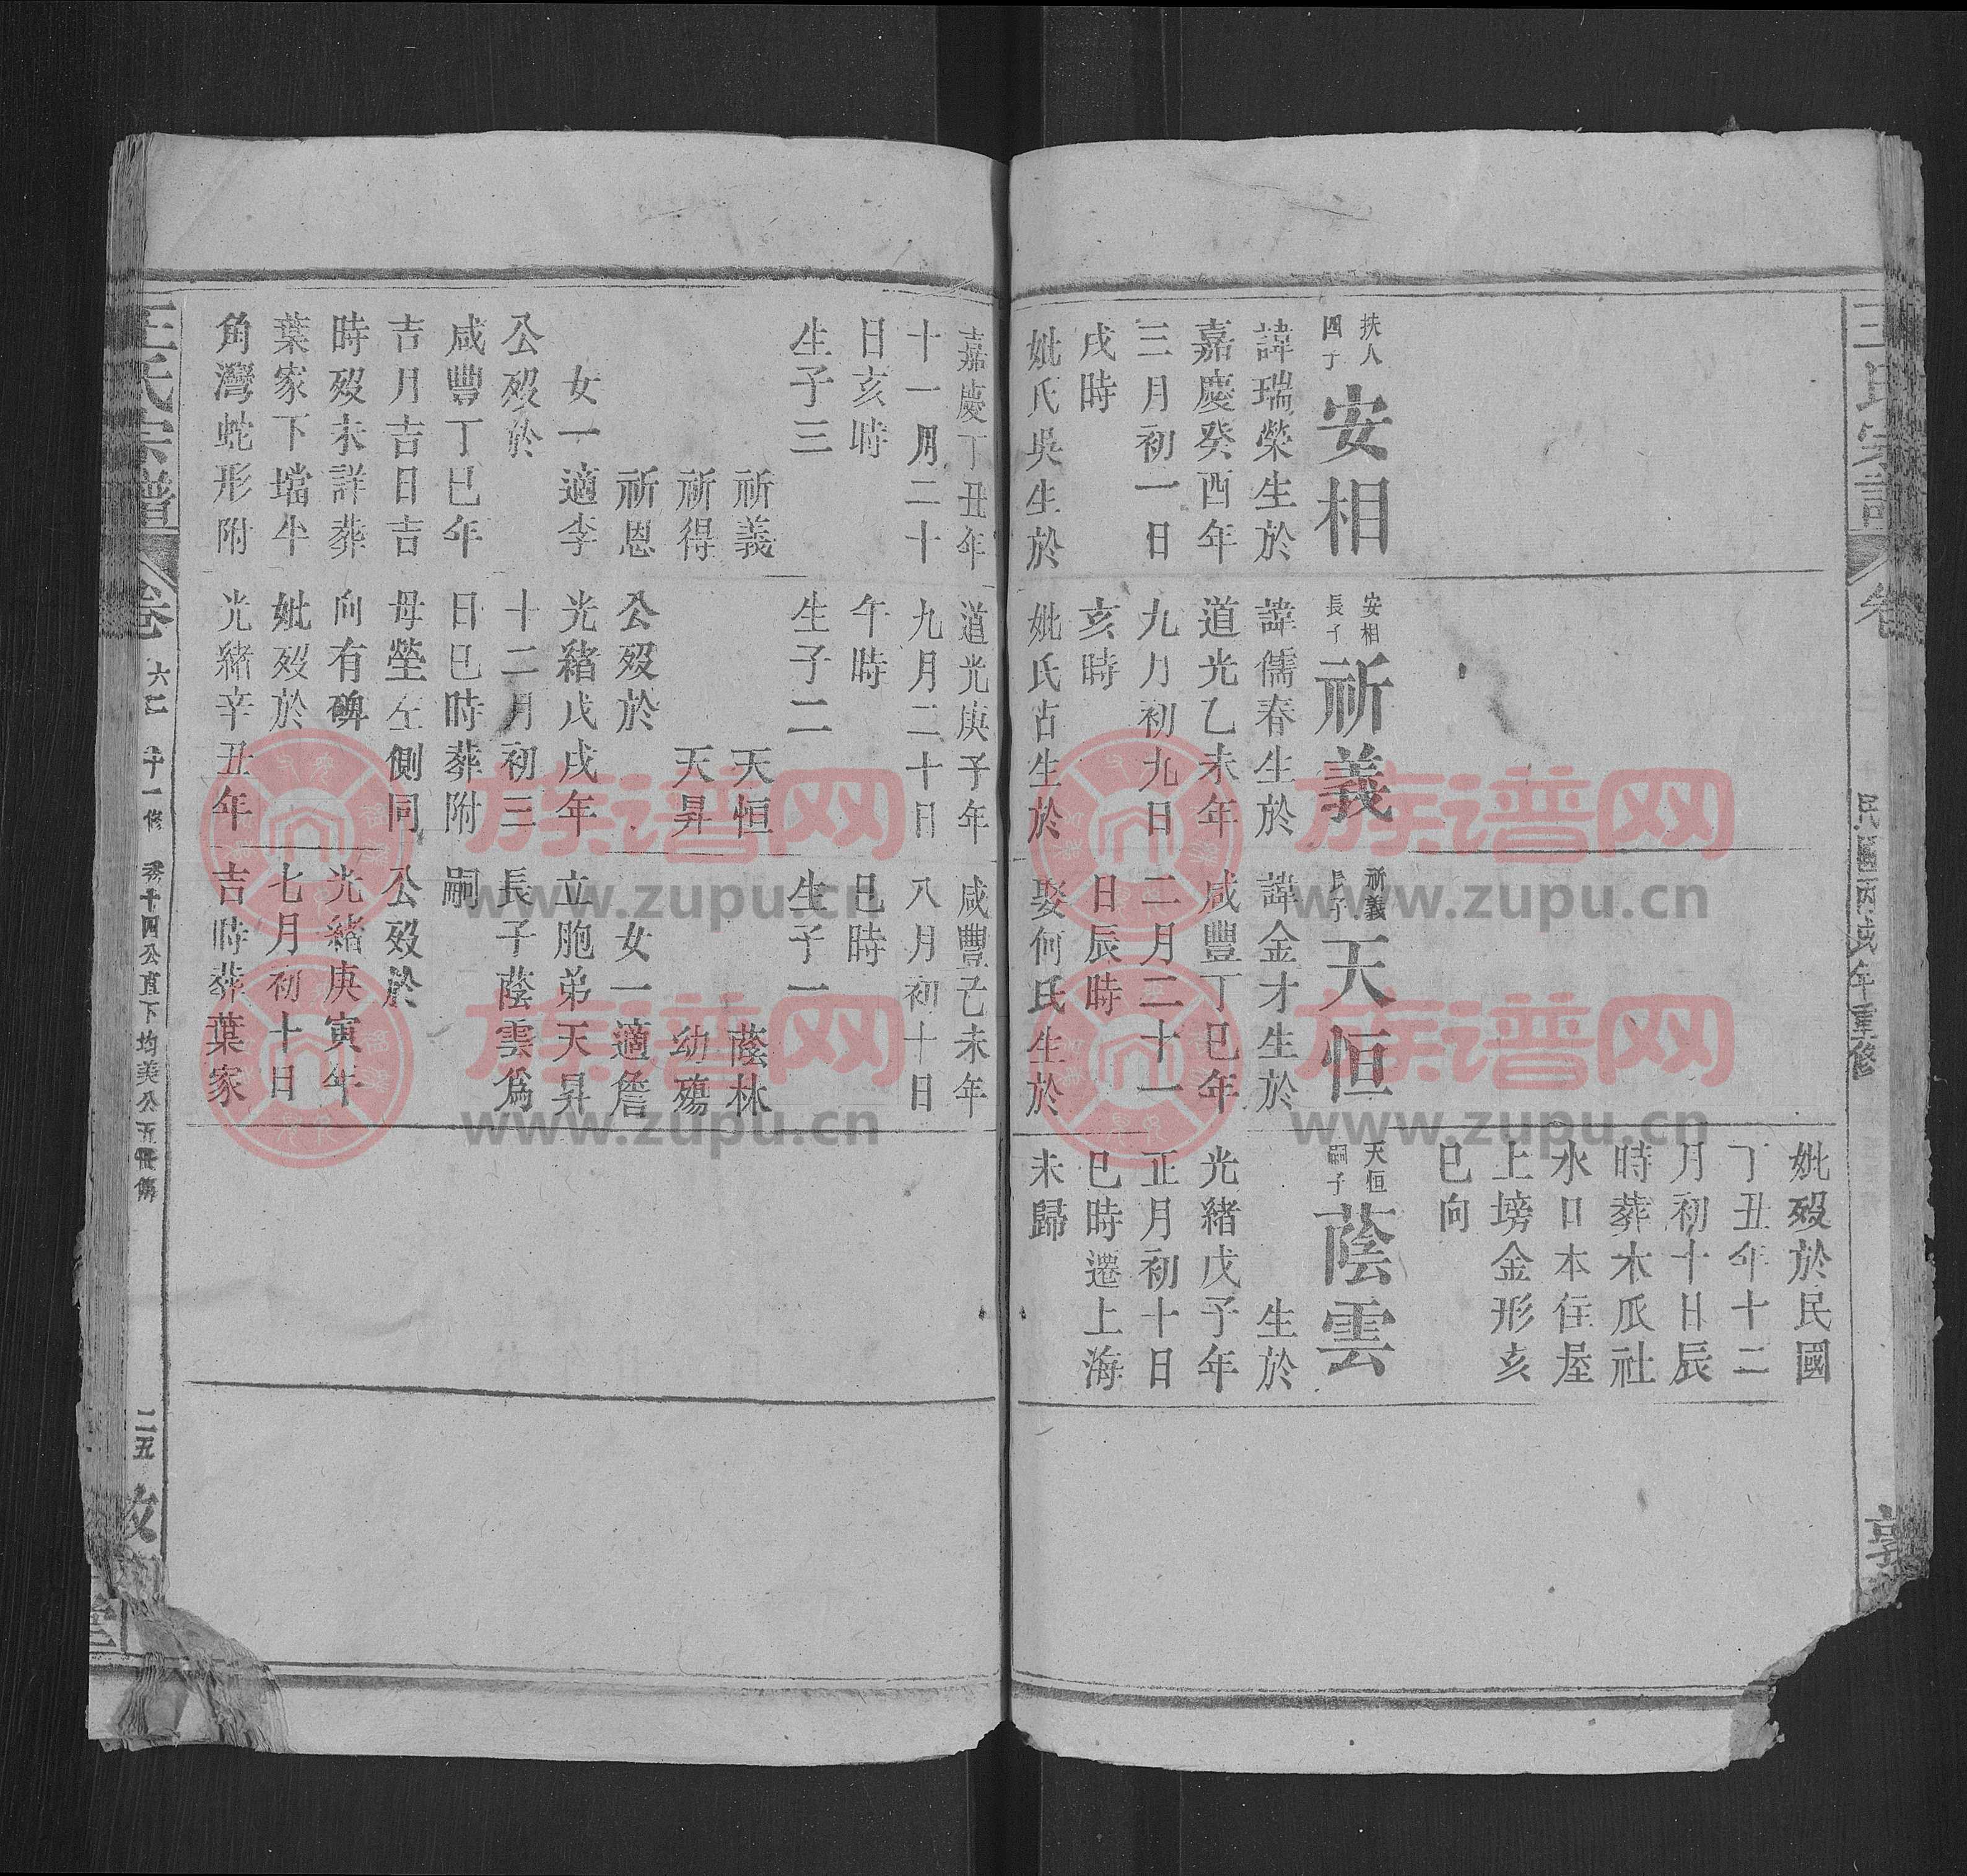 王氏宗譜
卷
民國丙戌年重修
敦
扶人
四子
安相
諱瑞榮生於
嘉慶癸酉年
三月初一日
戌時
妣氏吳生於
嘉慶丁丑年
十一月二十
日亥時
生子三
祈義
祈得
祈恩
女一適李
公歿於
咸豐丁巳年
吉月吉日吉
時歿未詳葬
葉家下壋牛
角灣蛇形附
安相
長子
祈義
諱儒春生於
道光乙未年
九月初九日
亥時
妣氏占生於
道光庚子年
九月二十日
午時
生子二
天恒
天昇
公歿於
光緒戊戌年
十二月初三
日巳時葬附
母塋左側同
向有碑
妣歿於
光緒辛丑年
祈義
長子
天恒
諱金才生於
咸豐丁巳年
二月二十一
日辰時
娶何氏生於
咸豐己未年
八月初十日
巳時
生子一
蔭林
幼殤
女一適詹
立胞弟天昇
長子蔭雲爲
嗣
公歿於
光緒庚寅年
七月初十日
吉時葬葉家
妣歿於民國
丁丑年十二
月初十日辰
時葬木瓜社
水口本住屋
上塝金形亥
巳向
天恒
嗣子
蔭雲
生於
光緒戊子年
正月初十日
巳時遷上海
未歸
王氏宗譜
卷六二
十一修
秀十四公直下均美公五世傳
二五
敦
堂
族谱网
www.zupu.cn
族谱网
www.zupu.cn
族谱网
www.zupu.cn
族谱网
www.zupu.cn